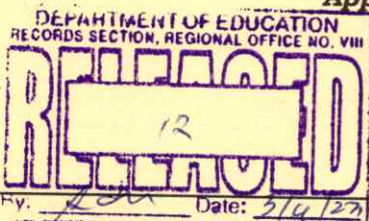 App
DEPARTMENT OF EDUCATION
RECORDS SECTION, REGIONAL OFFICE NO. VIII
RELEASED
12
By: Date: